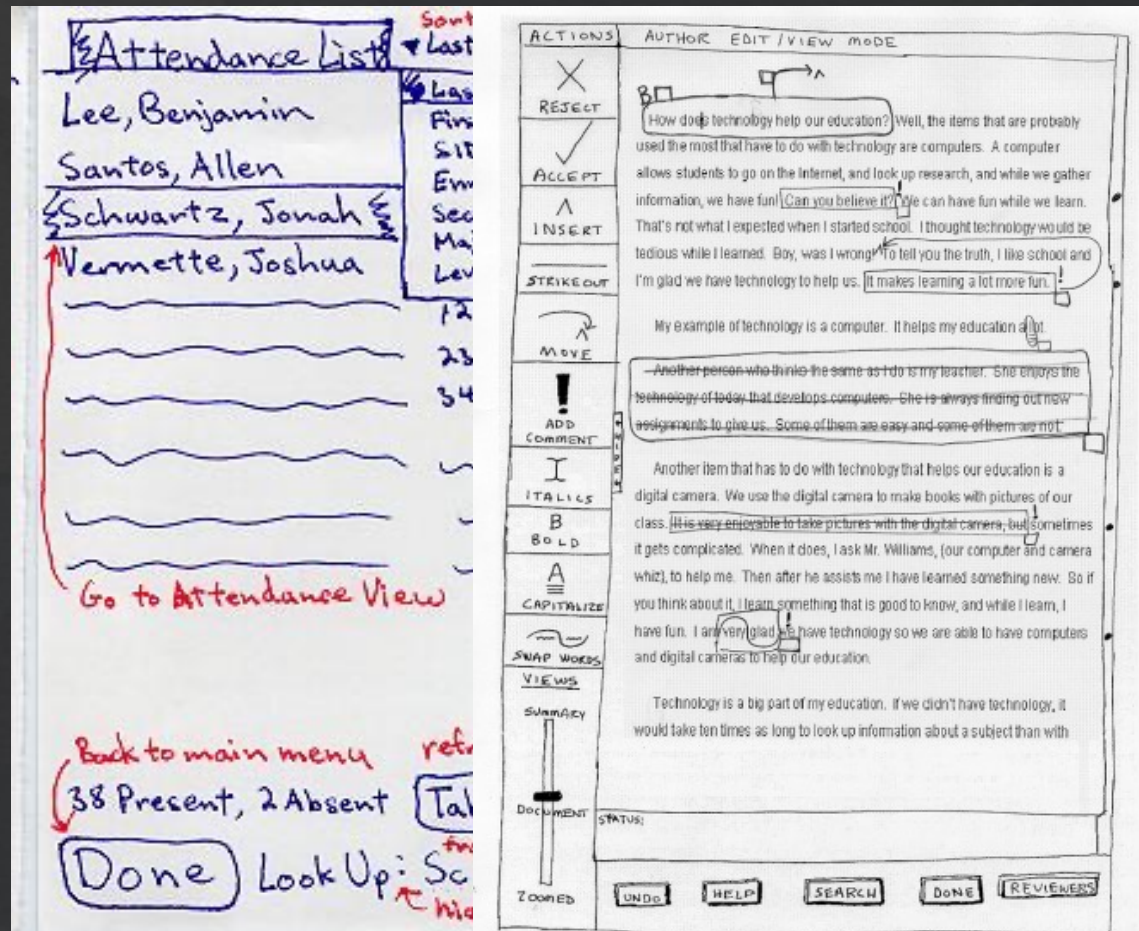 Attendance List
Lee, Benjamin
Santos, Allen
Schwartz, Jonah
Vermette, Joshua
Go to Attendance View
Back to main menu
38 Present, 2 Absent
Done
Look Up: Sc
Sort
Last
Las
Fir
SID
Em
Sec
Maj
Lev
12
23
34
ACTIONS
REJECT
ACCEPT
INSERT
STRIKEOUT
MOVE
!
ADD
COMMENT
I
ITALICS
B
BOLD
A
CAPITALIZE
SWAP WORDS
VIEWS
SUMMARY
DOCUMENT
ZOOMED
AUTHOR EDIT/VIEW MODE
B
How does technology help our education? Well, the items that are probably
used the most that have to do with technology are computers. A computer
allows students to go on the Internet, and look up research, and while we gather
information, we have fun! Can you believe it? We can have fun while we learn.
That's not what I expected when I started school. I thought technology would be
tedious while I learned. Boy, was I wrong! To tell you the truth, I like school and
I'm glad we have technology to help us. It makes learning a lot more fun.
My example of technology is a computer. It helps my education a lot.
Another person who thinks the same as I do is my teacher. She enjoys the
technology of today that develops computers. She is always finding out new
assignments to give us. Some of them are easy and some of them are not.
Another item that has to do with technology that helps our education is a
digital camera. We use the digital camera to make books with pictures of our
class. It is very enjoyable to take pictures with the digital camera, but sometimes
it gets complicated. When it does, I ask Mr. Williams, (our computer and camera
whiz), to help me. Then after he assists me I have learned something new. So if
you think about it, I learn something that is good to know, and while I learn, I
have fun. I am very glad we have technology so we are able to have computers
and digital cameras to help our education.
Technology is a big part of my education. If we didn't have technology, it
would take ten times as long to look up information about a subject than with
STATUS:
UNDO
HELP
SEARCH
DONE
REVIEWERS